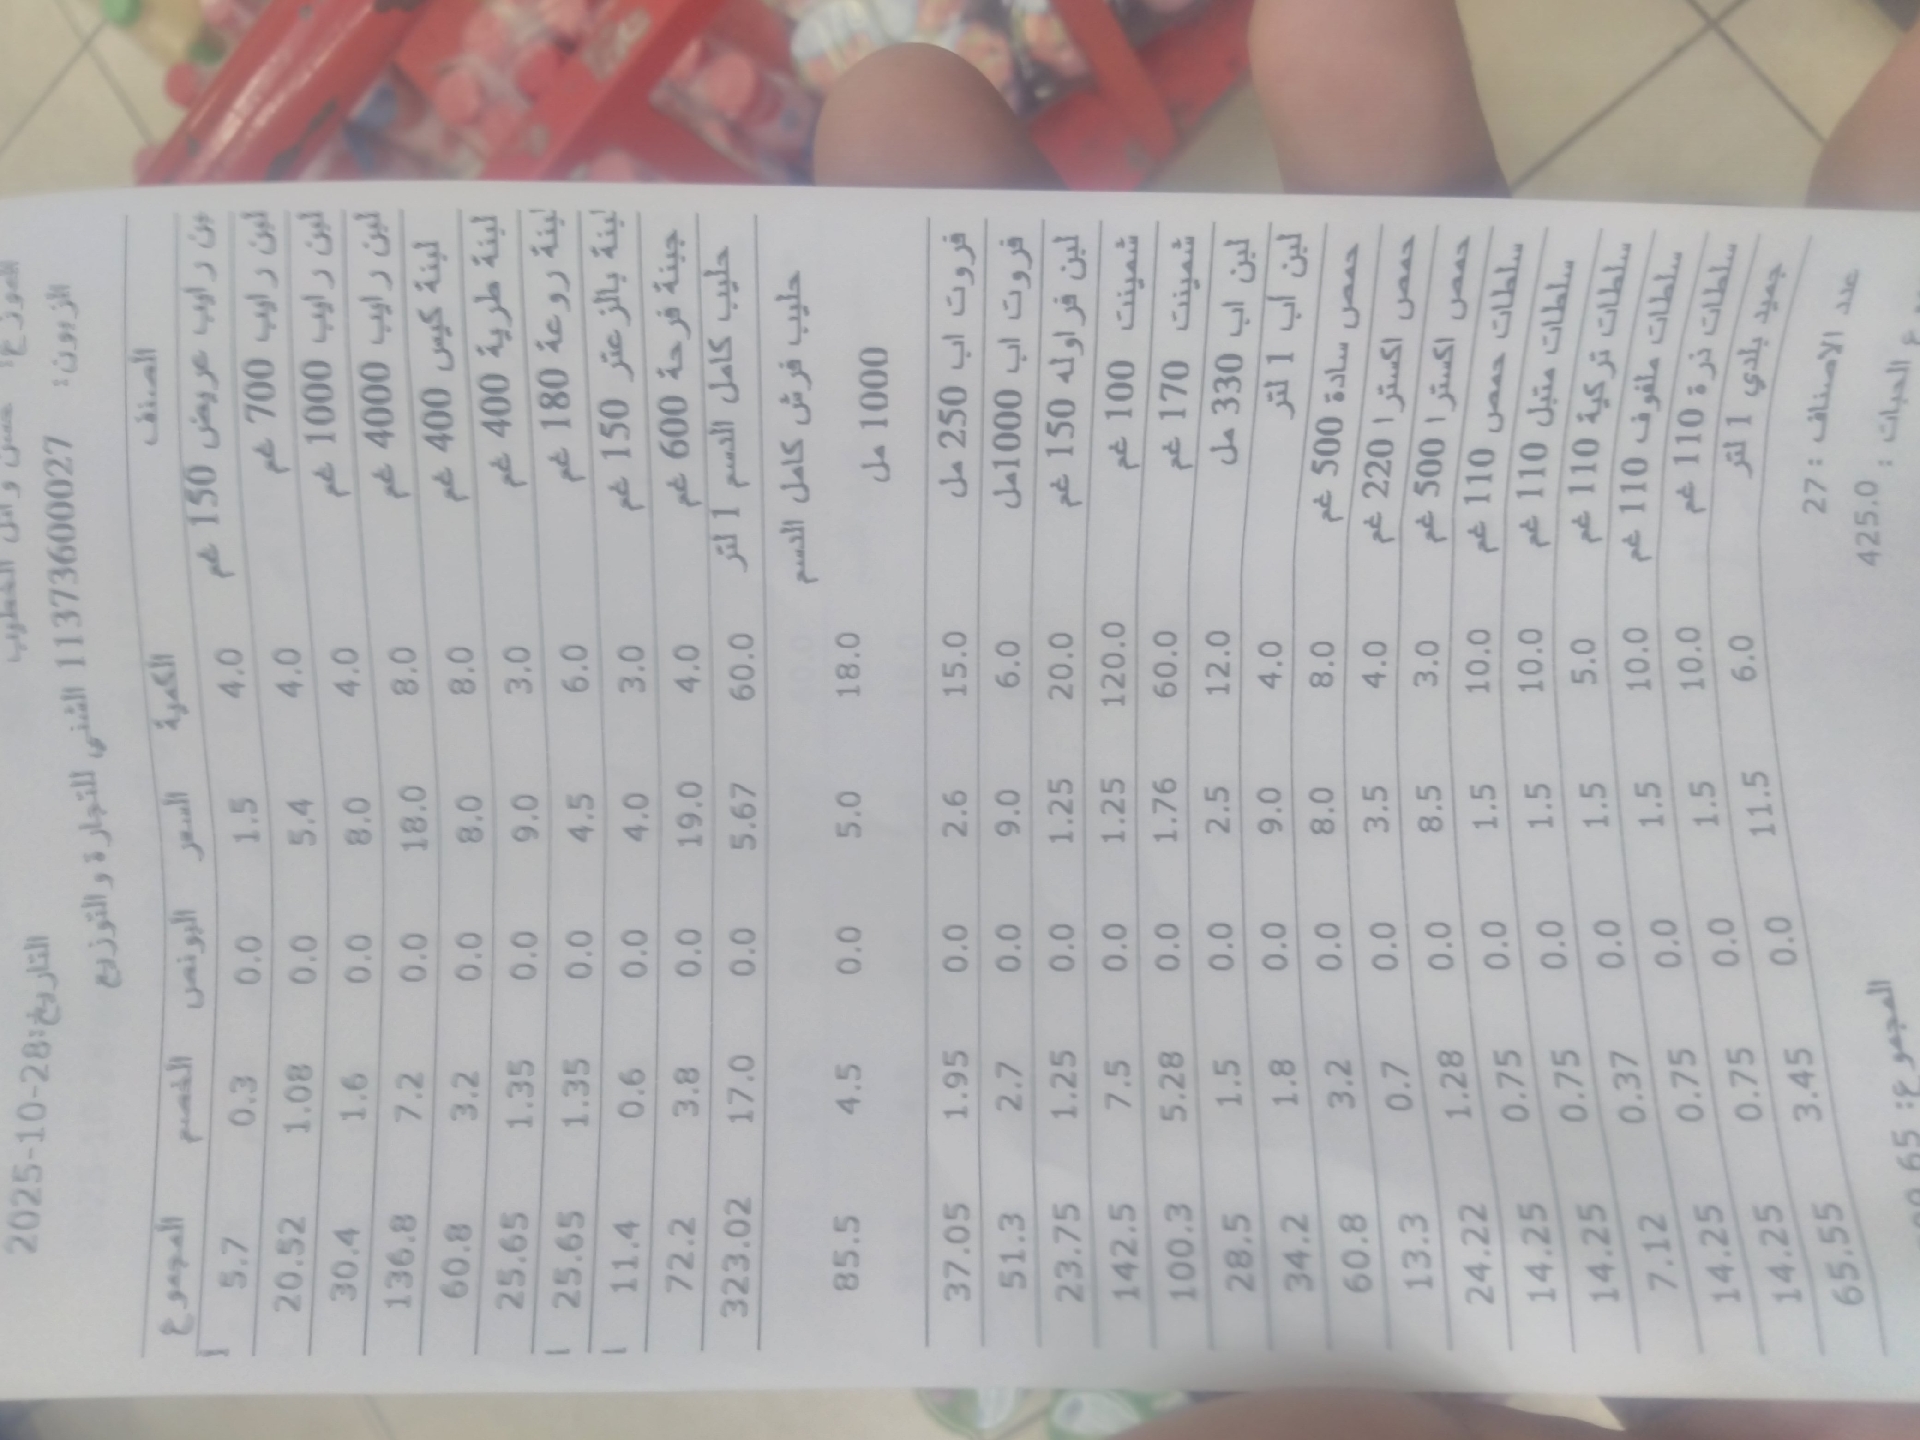 التاريخ:28-10-2025
الزبون: 11373600027 الشني للتجارة والتوزيع
الصنف الكمية السعر البونص الخصم المجموع
لبن رايب عريض 150 غم 4.0 1.5 0.0 0.3 5.7
لبن رايب 700 غم 4.0 5.4 0.0 1.08 20.52
لبن رايب 1000 غم 4.0 8.0 0.0 1.6 30.4
لبن رايب 4000 غم 8.0 18.0 0.0 7.2 136.8
لبنة كيس 400 غم 8.0 8.0 0.0 3.2 60.8
لبنة طرية 400 غم 3.0 9.0 0.0 1.35 25.65
لبنة روعة 180 غم 6.0 4.5 0.0 1.35 25.65
لبنة بالزعتر 150 غم 3.0 4.0 0.0 0.6 11.4
جبنة فرحة 600 غم 4.0 19.0 0.0 3.8 72.2
حليب كامل الدسم 1 لتر 60.0 5.67 0.0 17.0 323.02
حليب فرش كامل الدسم
1000 مل 18.0 5.0 0.0 4.5 85.5
فروت اب 250 مل 15.0 2.6 0.0 1.95 37.05
فروت اب 1000مل 6.0 9.0 0.0 2.7 51.3
لبن فراوله 150 غم 20.0 1.25 0.0 1.25 23.75
شمينت 100 غم 120.0 1.25 0.0 7.5 142.5
شمينت 170 غم 60.0 1.76 0.0 5.28 100.3
لبن اب 330 مل 12.0 2.5 0.0 1.5 28.5
لبن اب 1 لتر 4.0 9.0 0.0 1.8 34.2
حمص سادة 500 غم 8.0 8.0 0.0 3.2 60.8
حمص اكسترا 220 غم 4.0 3.5 0.0 0.7 13.3
حمص اكسترا 500 غم 3.0 8.5 0.0 1.28 24.22
سلطات حمص 110 غم 10.0 1.5 0.0 0.75 14.25
سلطات متبل 110 غم 10.0 1.5 0.0 0.75 14.25
سلطات تركية 110 غم 5.0 1.5 0.0 0.37 7.12
سلطات ملفوف 110 غم 10.0 1.5 0.0 0.75 14.25
سلطات ذرة 110 غم 10.0 1.5 0.0 0.75 14.25
جميد بلدي 1 لتر 6.0 11.5 0.0 3.45 65.55
عدد الاصناف : 27
الحبات : 425.0
المجموع: